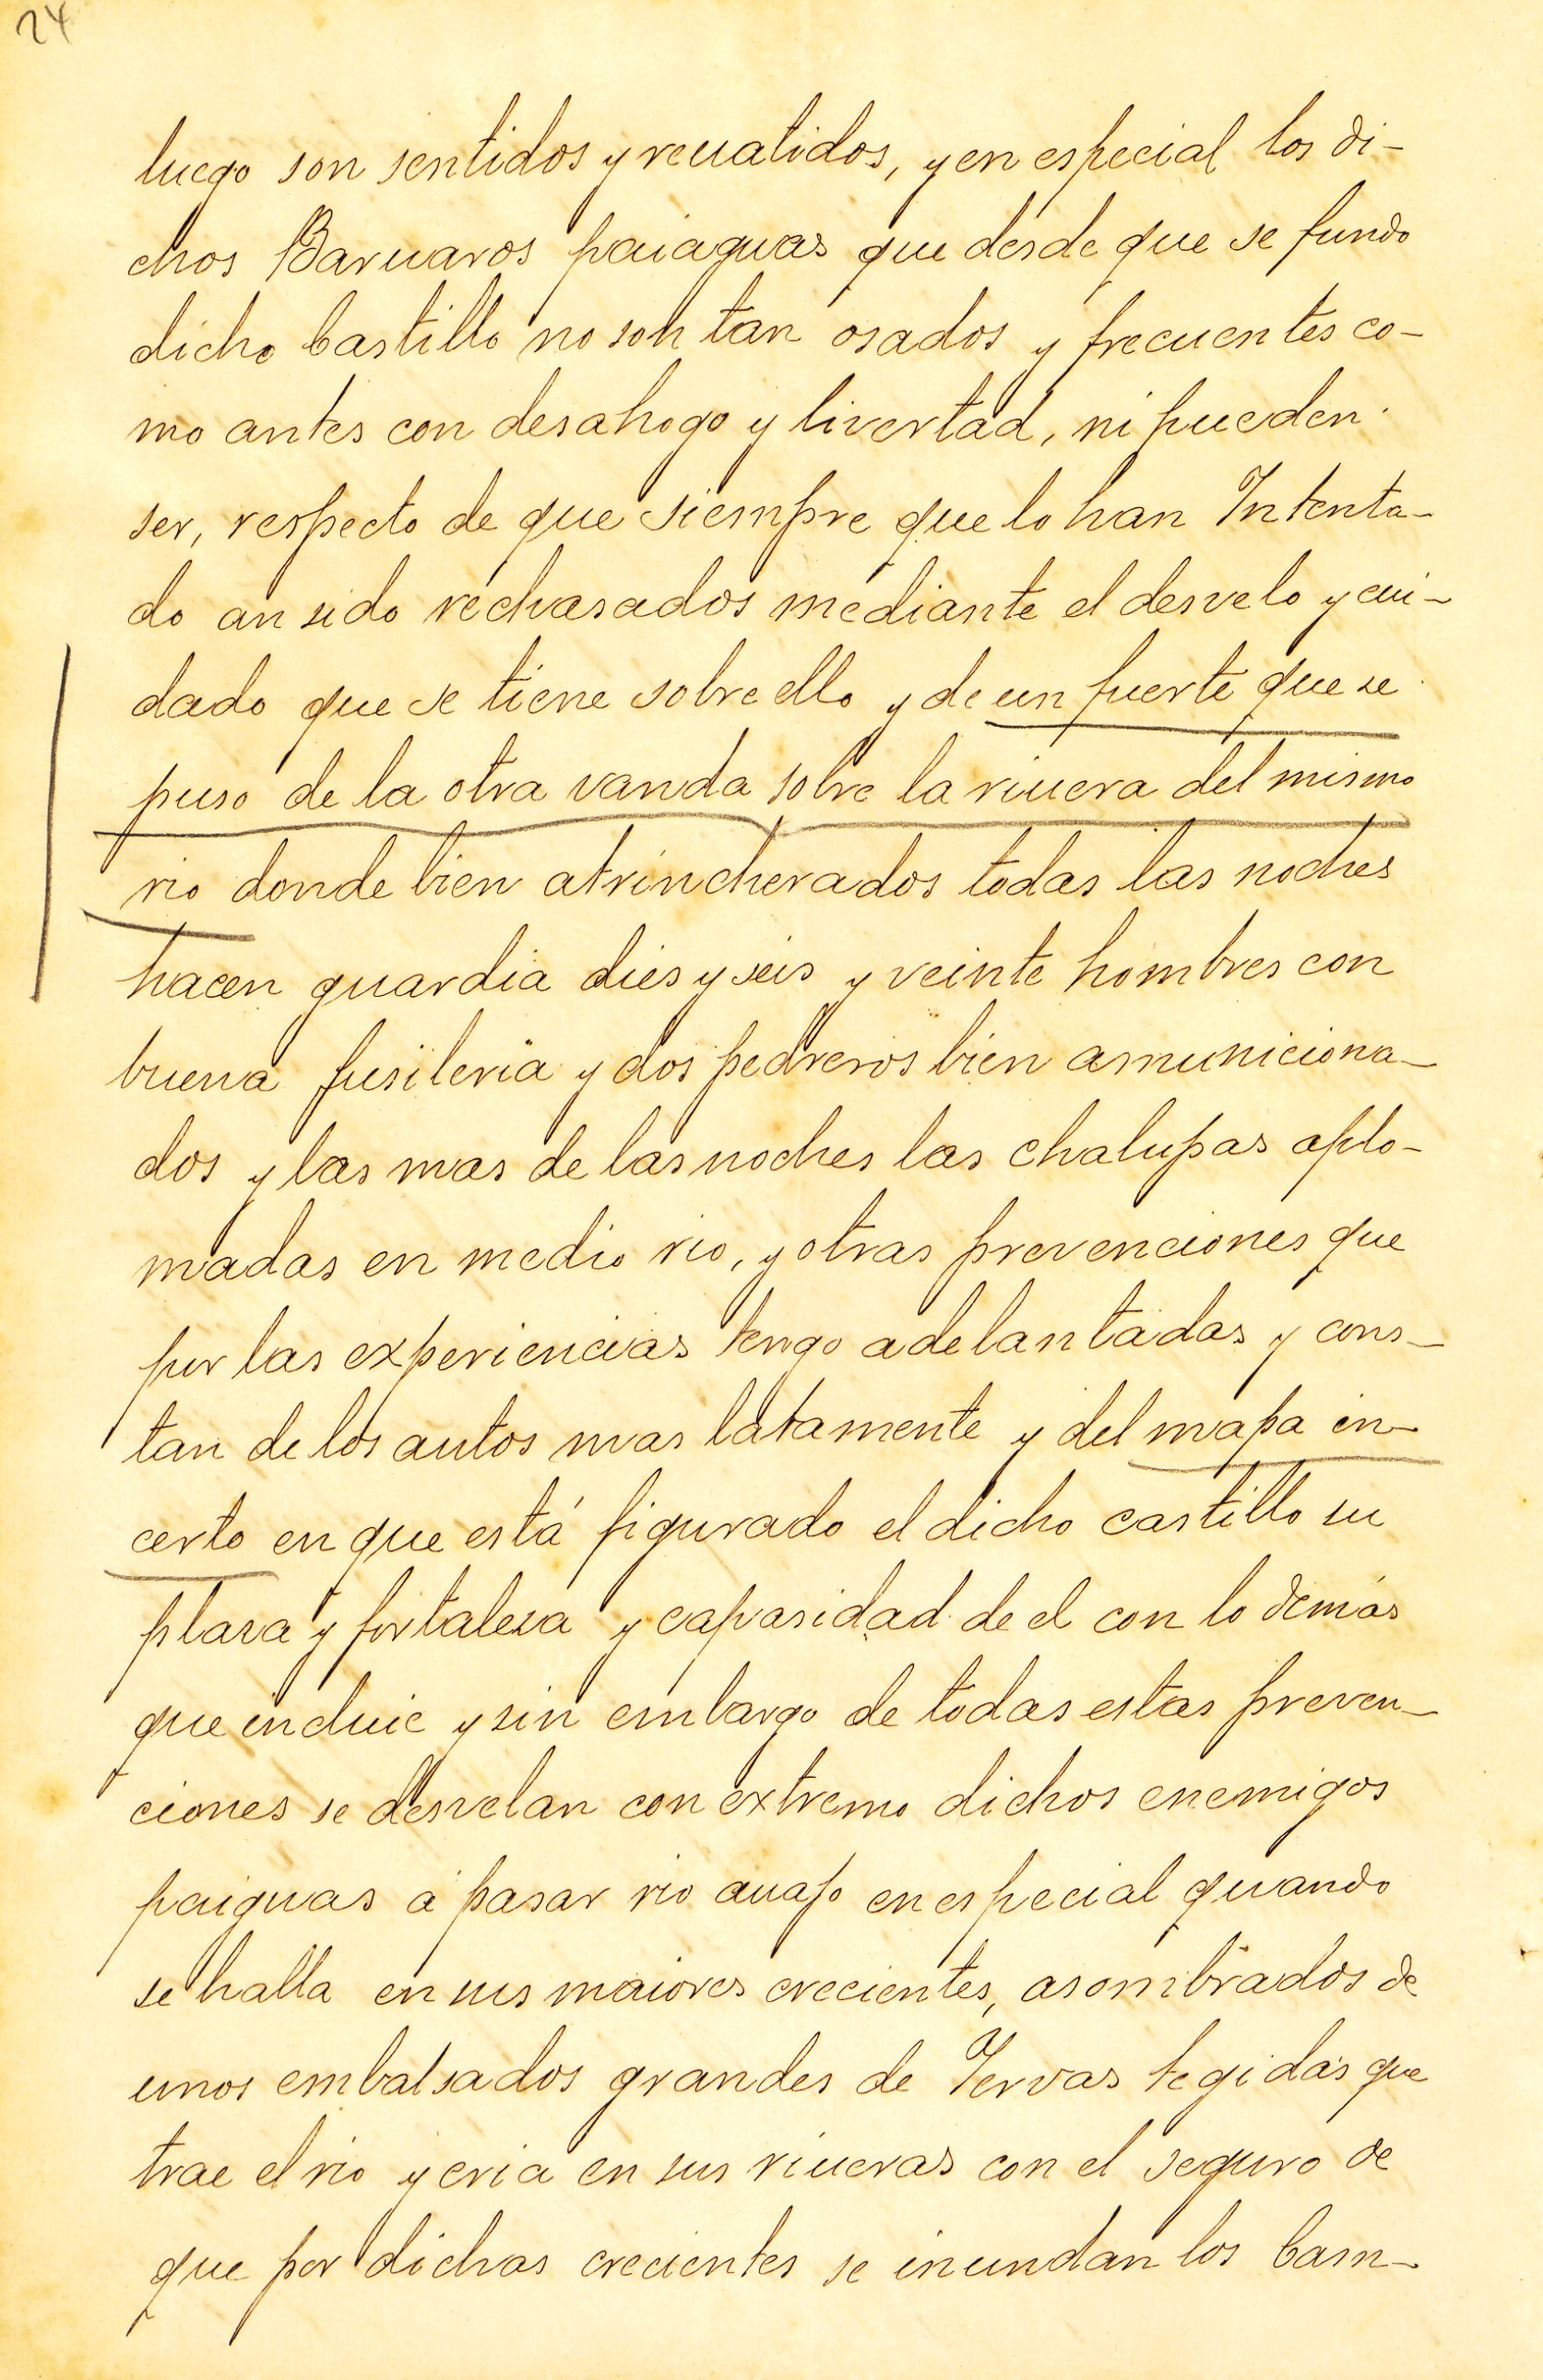 24
luego son sentidos y reuatidos, y en especial los di-
chos Baruaros paiaguas que desde que se fundo
dicho Castillo no son tan osados y frecuentes co-
mo antes con desahogo y livertad, ni pueden
ser, respecto de que siempre que lo han Intenta-
do an sido rechasados mediante el desvelo y cui-
dado que se tiene sobre ello y de un fuerte que se
puso de la otra vanda sobre la riuera del mismo
rio donde bien atrincherados todas las noches
hacen guardia dies y seis y veinte hombres con
buena fusileria y dos pedreros bien amuniciona-
dos y las mas de las noches las chalupas aplo-
madas en medio rio, y otras prevenciones que
por las experiencias tengo adelantadas y cons-
tan de los autos mas latamente y del mapa in-
certo en que está figurado el dicho castillo su
plasa y fortalesa y capasidad de el con lo demás
que incluie y sin embargo de todas estas preven-
ciones se desvelan con extremo dichos enemigos
paiguas á pasar rio auajo en especial quando
se halla en sus maiores crecientes, asombrados de
unos embalsados grandes de Yervas tegidas que
trae el rio y cria en sus riueras con el seguro de
que por dichas crecientes se inundan los Cam-